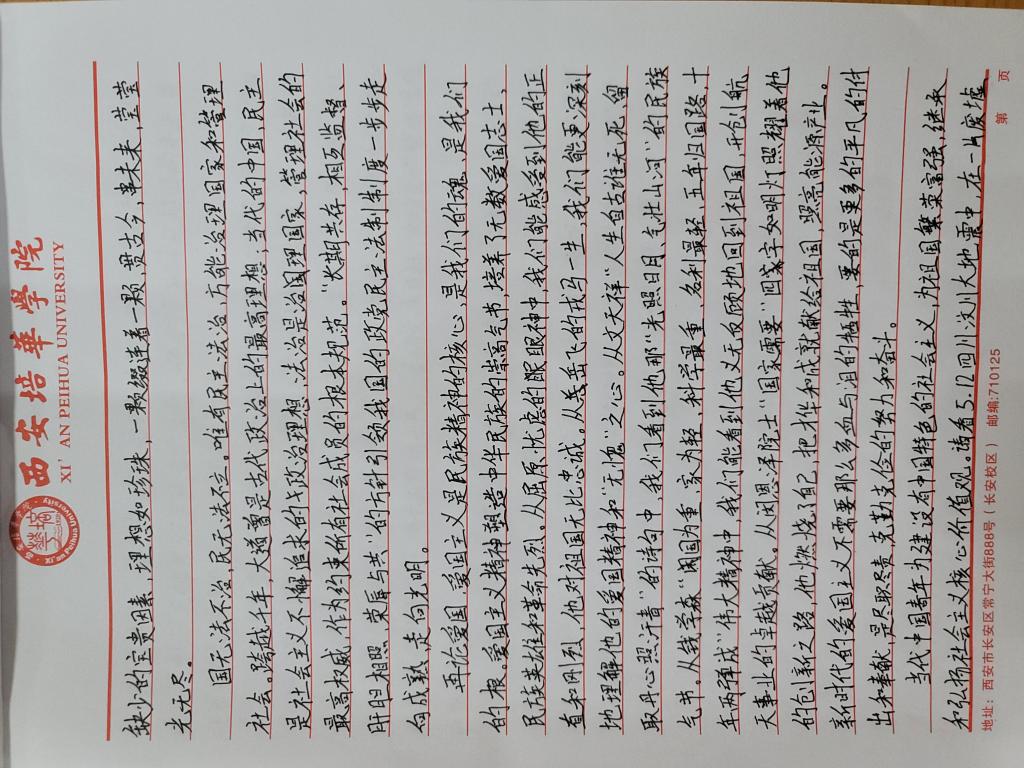 西安培華學院
XI'AN PEIHUA UNIVERSITY
缺少的宝贵因素,理想如珍珠,一颗缀连着一颗,贯古今,串未来,莹莹
光无尽。
国无法不治,民无法不立。唯有民主法治,方能治理国家和管理
社会。跨越千年,大道著是古代政治上的最高理想;当代的中国,民主
是社会主义不懈追求的政治理想,法是治国理国家,管理社会的
最高权威,作为约束所有社会成员的根本规范。“长期共存,相互监督、
肝胆相照、荣辱与共”的方针引领我国的政党民主法制制度一步步走
向成熟,走向光明。
再论爱国,爱国主义是民族精神的核心,是我们的魂,是我们
的根。爱国主义精神塑造中华民族的崇高气节,培养了无数爱国志士、
民族英雄和革命先烈。从屈原忧虑的眼眼神中,我们能感受到他的正
直和刚烈,他对祖国无比忠诚。从岳飞的戎马一生,我们能更深刻
地理解他的爱国精神和“无愧”之心。从文天祥“人生自古谁无死,留
取丹心照汗青”的诗句中,我们看到他那“光照日月、气壮山河”的民族
气节。从钱学森“国为重,家为轻,科学最重,名利最轻,五年归国路,十
年两弹成”伟大精神中,我们能看到他义无反顾地回到祖国,开创航
天事业的卓越贡献。从闵恩泽院士“国家需要”四溪字如明灯照耀着他
的创新之路,他燃烧了自己,把才华和成就献给祖国,照亮能源产业。
新时代的爱国主义不需要那么多血与泪的牺牲,要的是更多的平凡的付
出和奉献,是尽职尽责,克勤克俭的努力和奋斗。
当代中国青年为建设有中国特色的社会主义,为祖国繁荣富强,继承
和弘扬社会主义核心价值观。请看5.12四川汶川大地震中,在一片废墟
地址:西安市长安区常宁大街888号(长安校区) 邮编:710125
第 页